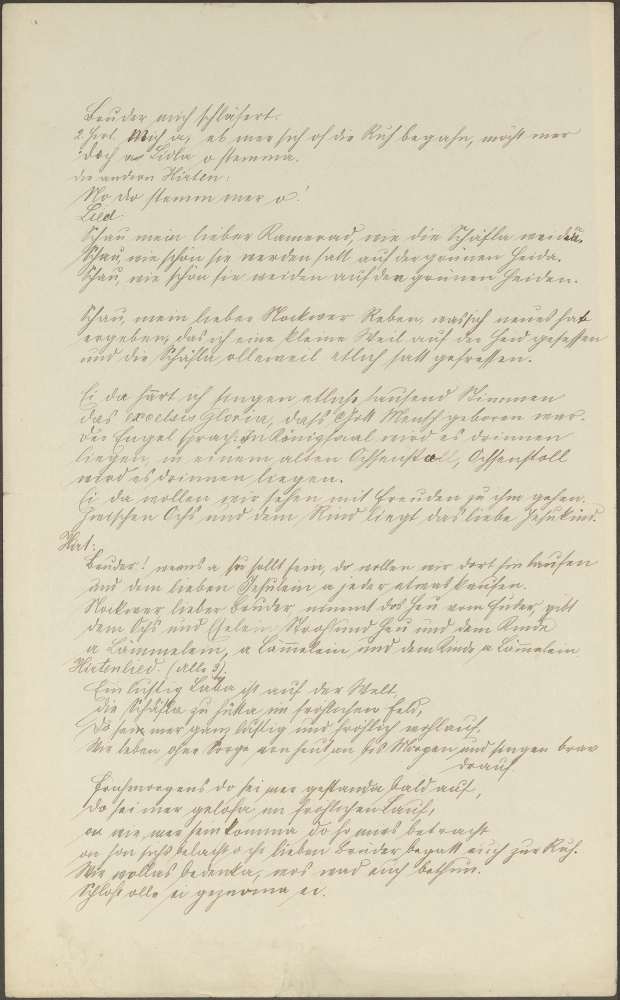 Bruder mich schläfert.
2. Hirt. Mich a, eb mer sich of die Ruh begahn, möcht mer
doch a Liedla o stemma.
die andern Hirten:
No do stemm mer o!
Lied:
Schau mein lieber Kamerad, wie die Schäfla weiden,
Schau, wie schön sie werden satt auf der grünen Heida.
Schau, wie schön sie weiden auf den grünen Heiden.
Schau, mein lieber Nockwer Reben, was sich neues hat
ergeben, das ich eine kleine Weil auf der Heid gesessen
und die Schäfla ollerweil etlich satt gefressen.
Ei da hört ich singen etliche tausend Stimmen
das excelsis Gloria, daß Gott Mensch geboren war.
Der Engel sprach: In Königsaal wird es drinnen
liegen, in einem alten Ochsenstall, Ochsenstoll
wird es drinnen liegen.
Ei da wollen wir sehen mit Freuden zu ihm gehen.
Zwischen Ochs und dem Rind liegt das liebe Jesukind.
Hirt:
Bruder! wenns a so sollt sein, do wollen wir dort hin laufen
und dem lieben Jesulein a jeder etwas kaufen.
Nockwer lieber Bruder nimmt das Heu vom Fuder, gibt
dem Ochs und Eselein Stroh und Heu und dem Kinde
a Lämmelein, a Lämmelein und dem Kinde a Lämmelein
Hirtenlied. (alle 3)
Ein lustig Laba ist auf der Welt,
die Schäfla zu hütta im fröhlichen Feld,
Do sein mer ganz lustig und fröhlich wohlauf.
Wir leben ohne Sorge von heut an bis Morgen und singen brav
drauf.
Frühmorgens do sei mer gestanda bald auf,
do sei mer gelofa im fröhlichen Lauf,
wie mer sein komma do ho mers betracht
lieben Brüder begatt euch zur Ruh.
Wir wollas bedenka, wos wad euch bethun.
Schloft olle ei